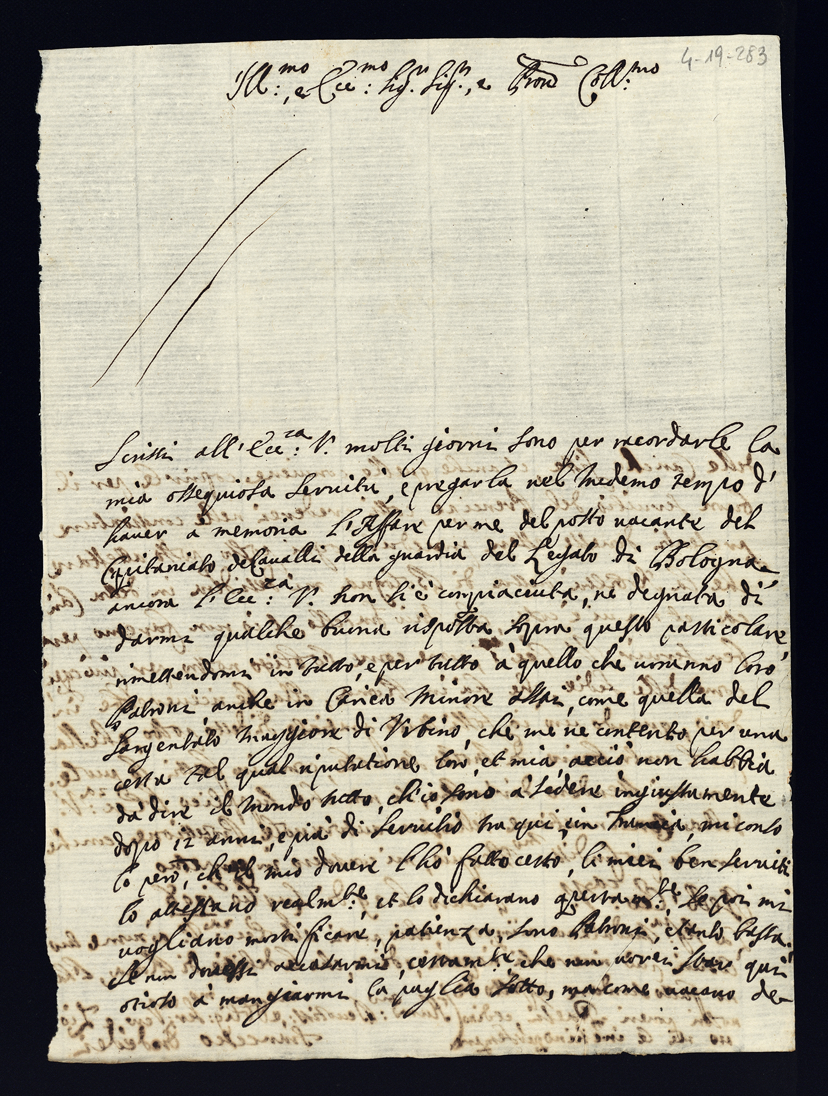 4-19-283
Ill:mo, e Ecc:mo Sig.r Sig.r, e Pron Coll:mo
Scrissi all'Ecc:za V. molti giorni sono per racordarle la
mia ossequiosa servitù, e pregarla nel medemo tempo d'
haver a memoria l'affare per me del posto vacante del
Capitaniato de Cavalli della guardia del Legato di Bologna
ancora l'Ecc:za V. non si è compiaciuta, ne degnata di
darmi qualche buona risposta sopra questo particolare
rimettendomi in tutto, e per tutto à quello che vorranno loro
Patroni, anche in Carica minore assai, come quella del
Sargentato maggiore di Urbino, che me ne contento per una
certa tal qual riputatione loro, et mia acciò non habbia
da dire il mondo tutto, ch'io sono à sedere ingiustamente
dopo 12 anni, e più di servitio tra qui, e in Francia, mi conso
lo però, ch'il mio dovere l'hò fatto certo, li miei ben serviti
lo attestano realm:te, et lo dichiarano, se poi mi
vogliano mortificare, patienza, sono Patroni, e tanto basta.
Se non dovessi accasarmi, certam:te che non vorei star quì
otioso à mangiarmi la paglia sotto, ma come vacano de-